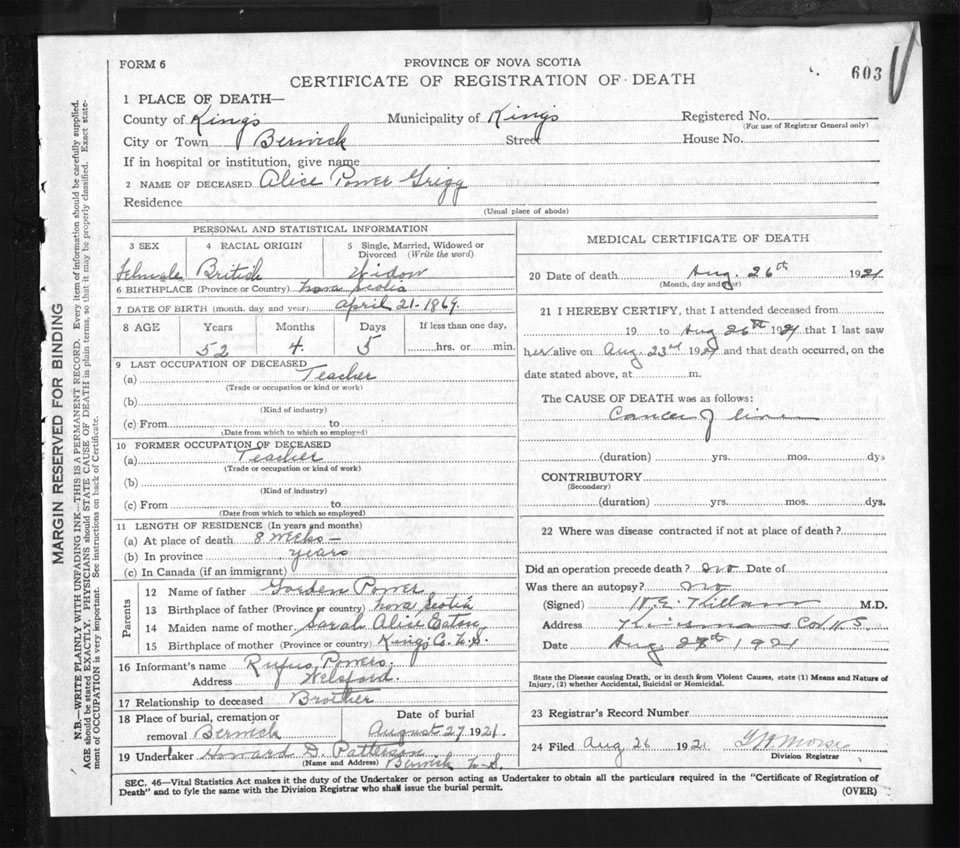 FORM 6
PROVINCE OF NOVA SCOTIA
CERTIFICATE OF REGISTRATION OF DEATH
603
1 PLACE OF DEATH—
County of Kings Municipality of Kings Registered No.
(For use of Registrar General only)
City or Town Berwick Street House No.
If in hospital or institution, give name
2 NAME OF DECEASED Alice Power Grigg
Residence
(Usual place of abode)
PERSONAL AND STATISTICAL INFORMATION
3 SEX 4 RACIAL ORIGIN 5 Single, Married, Widowed or
Divorced (Write the word)
Female British Widow
6 BIRTHPLACE (Province or Country) Nova Scotia
7 DATE OF BIRTH (month, day and year) April 21-1869
8 AGE Years Months Days If less than one day,
52 4 5 hrs. or min.
9 LAST OCCUPATION OF DECEASED
(a) Teacher
(Trade or occupation or kind or work)
(b)
(Kind of industry)
(c) From to
(Date from which to which so employed)
10 FORMER OCCUPATION OF DECEASED
(a) Teacher
(Trade or occupation or kind of work)
(b)
(Kind of industry)
(c) From to
(Date from which to which so employed)
11 LENGTH OF RESIDENCE (In years and months)
(a) At place of death 8 weeks —
(b) In province years
(c) In Canada (if an immigrant)
Parents
12 Name of father Gorden Power
13 Birthplace of father (Province or country) Nova Scotia
14 Maiden name of mother Sarah Alice Eaton
15 Birthplace of mother (Province or country) Kings Co. N.S.
16 Informant's name Rufus Powers,
Address Welsford.
17 Relationship to deceased Brother
18 Place of burial, cremation or Date of burial
removal Berwick August 27 1921
19 Undertaker Howard D. Patterson
(Name and Address) Berwick N.S.
MEDICAL CERTIFICATE OF DEATH
20 Date of death Aug. 26th 1921
(Month, day and year)
21 I HEREBY CERTIFY, that I attended deceased from
19 to Aug 26th 1921 that I last saw
her alive on Aug. 23rd 1921 and that death occurred, on the
date stated above, at m.
The CAUSE OF DEATH was as follows:
Cancer of liver
(duration) yrs. mos. dys
CONTRIBUTORY
(Secondary)
(duration) yrs. mos. dys.
22 Where was disease contracted if not at place of death?
Did an operation precede death? No Date of
Was there an autopsy? No
(Signed) M.D.
Address Co N S
Date Aug 27th 1921
State the Disease causing Death, or in death from Violent Causes, state (1) Means and Nature of
Injury, (2) whether Accidental, Suicidal or Homicidal.
23 Registrar's Record Number
24 Filed Aug 26 1921 Morse
Division Registrar
SEC. 46—Vital Statistics Act makes it the duty of the Undertaker or person acting as Undertaker to obtain all the particulars required in the "Certificate of Registration of
Death" and to fyle the same with the Division Registrar who shall issue the burial permit.
(OVER)
MARGIN RESERVED FOR BINDING
N.B.—WRITE PLAINLY WITH UNFADING INK—THIS IS A PERMANENT RECORD. Every item of information should be carefully supplied.
AGE should be stated EXACTLY. PHYSICIANS should STATE CAUSE OF DEATH in plain terms, so that it may be properly classified. Exact state-
ment of OCCUPATION is very important. See instructions on back of Certificate.